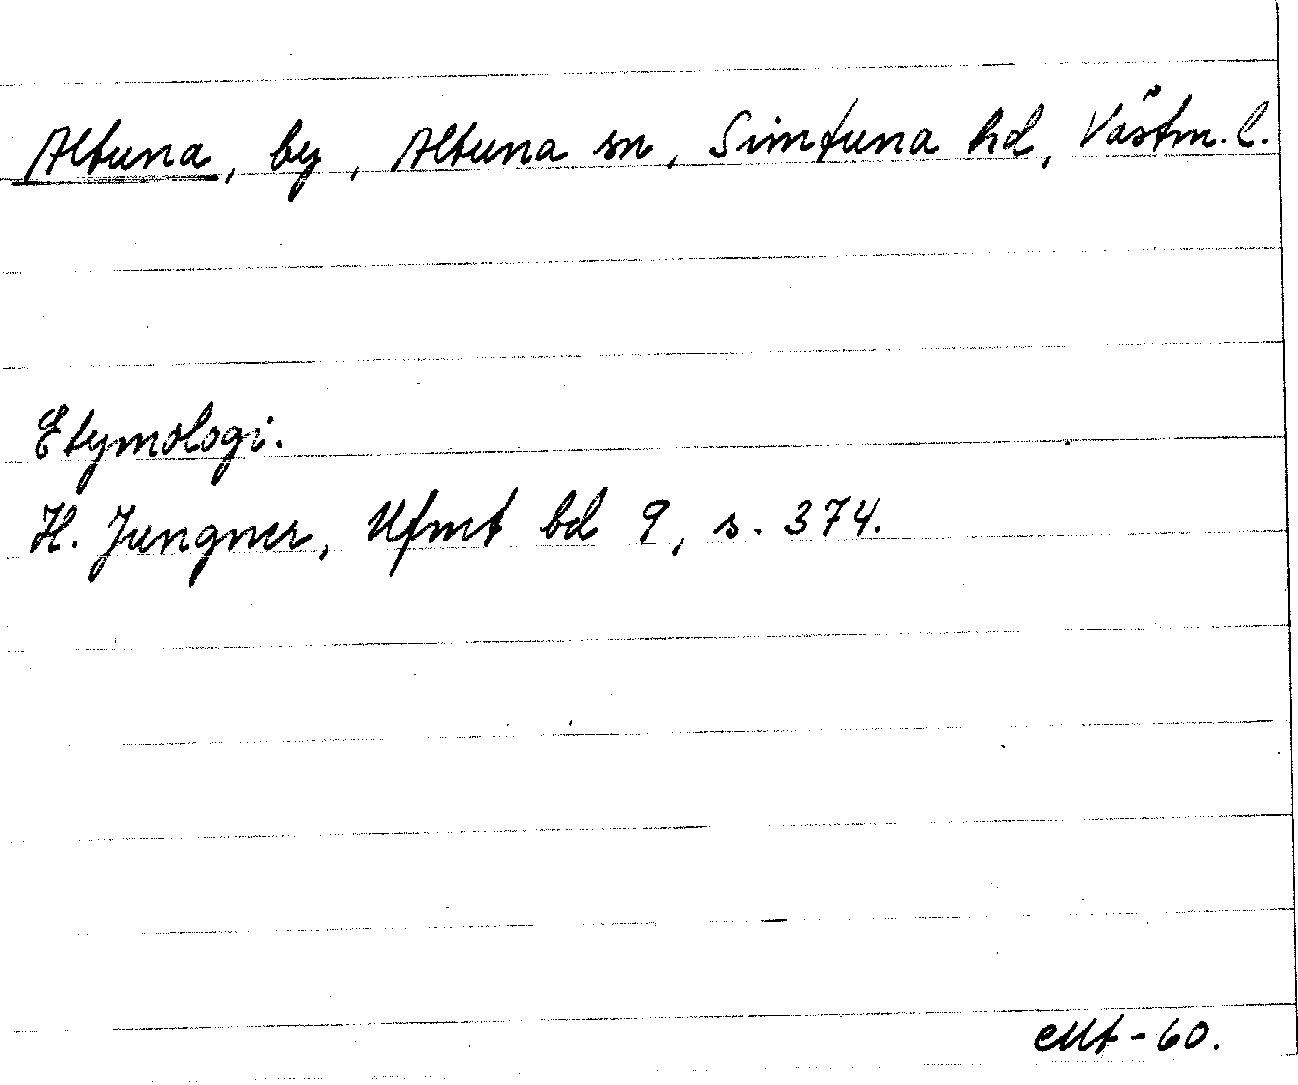 Altuna, by, Altuna sn, Simtuna hd, Västm. l.
Etymologi.
H. Jungner, Ufmt bd 9, s. 374.
EMt-60.